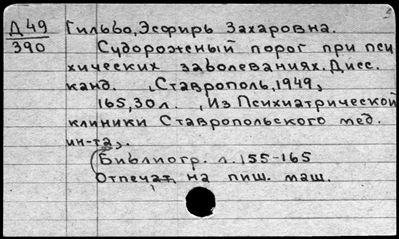 Д 49 Гильво, Эсфирь Захаровна.
390 Судорожный порог при пси
хических заболеваниях. Дисс.
канд. , Ставрополь, 1949,
165,30 л. , Из Психиатрической
клиники Ставропольского мед.
ин-та,.
Библиогр. л. 155-165
Отпечат, на пиш. маш.